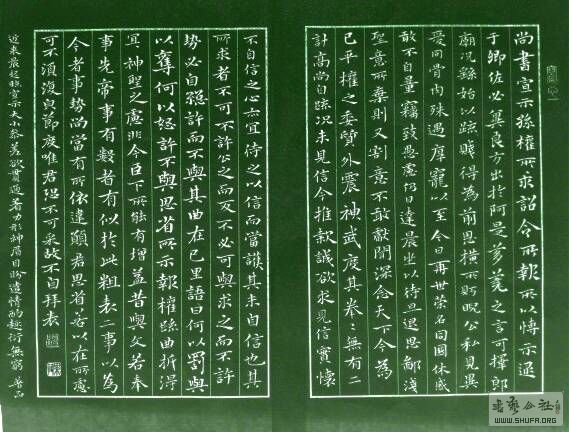 尚書宣示孫權所求詔令所報所以博示逮
于卿佐必冀良方出於阿是芻蕘之言可擇郎
廟況繇始以疏賤得為前恩橫所盼睨公私見異
愛同骨肉殊遇厚寵以至今日再世榮名同國休慼
敢不自量竊致愚慮仍日達晨坐以待旦退思鄙淺
聖意所棄則又割意不敢獻聞深念天下今為
已平權之委質外震神武度其拳拳無有二
計高尚自疏況未見信今推款誠欲求見信實懷
不自信之心亦宜待之以信而當護其未自信也其
所求者不可不許許之而反不必可與求之而不許
勢必自絕許而不與其曲在己里語曰何以罰與
以奪何以怒許不與思省所示報權疏曲折得
宜神聖之慮非今臣下所能有增益昔與文若奉
事先帝事有數者有似於此粗表二事以為
今者事勢尚當有所依違願君思省若以在所慮
可不須復貌節度唯君恐不可采故不自拜表
書藝公社
WWW.SHUFA.ORG